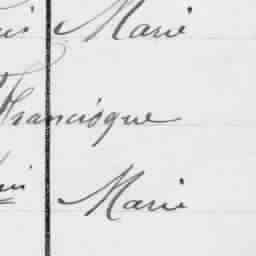 Marie
Francisque
Marie